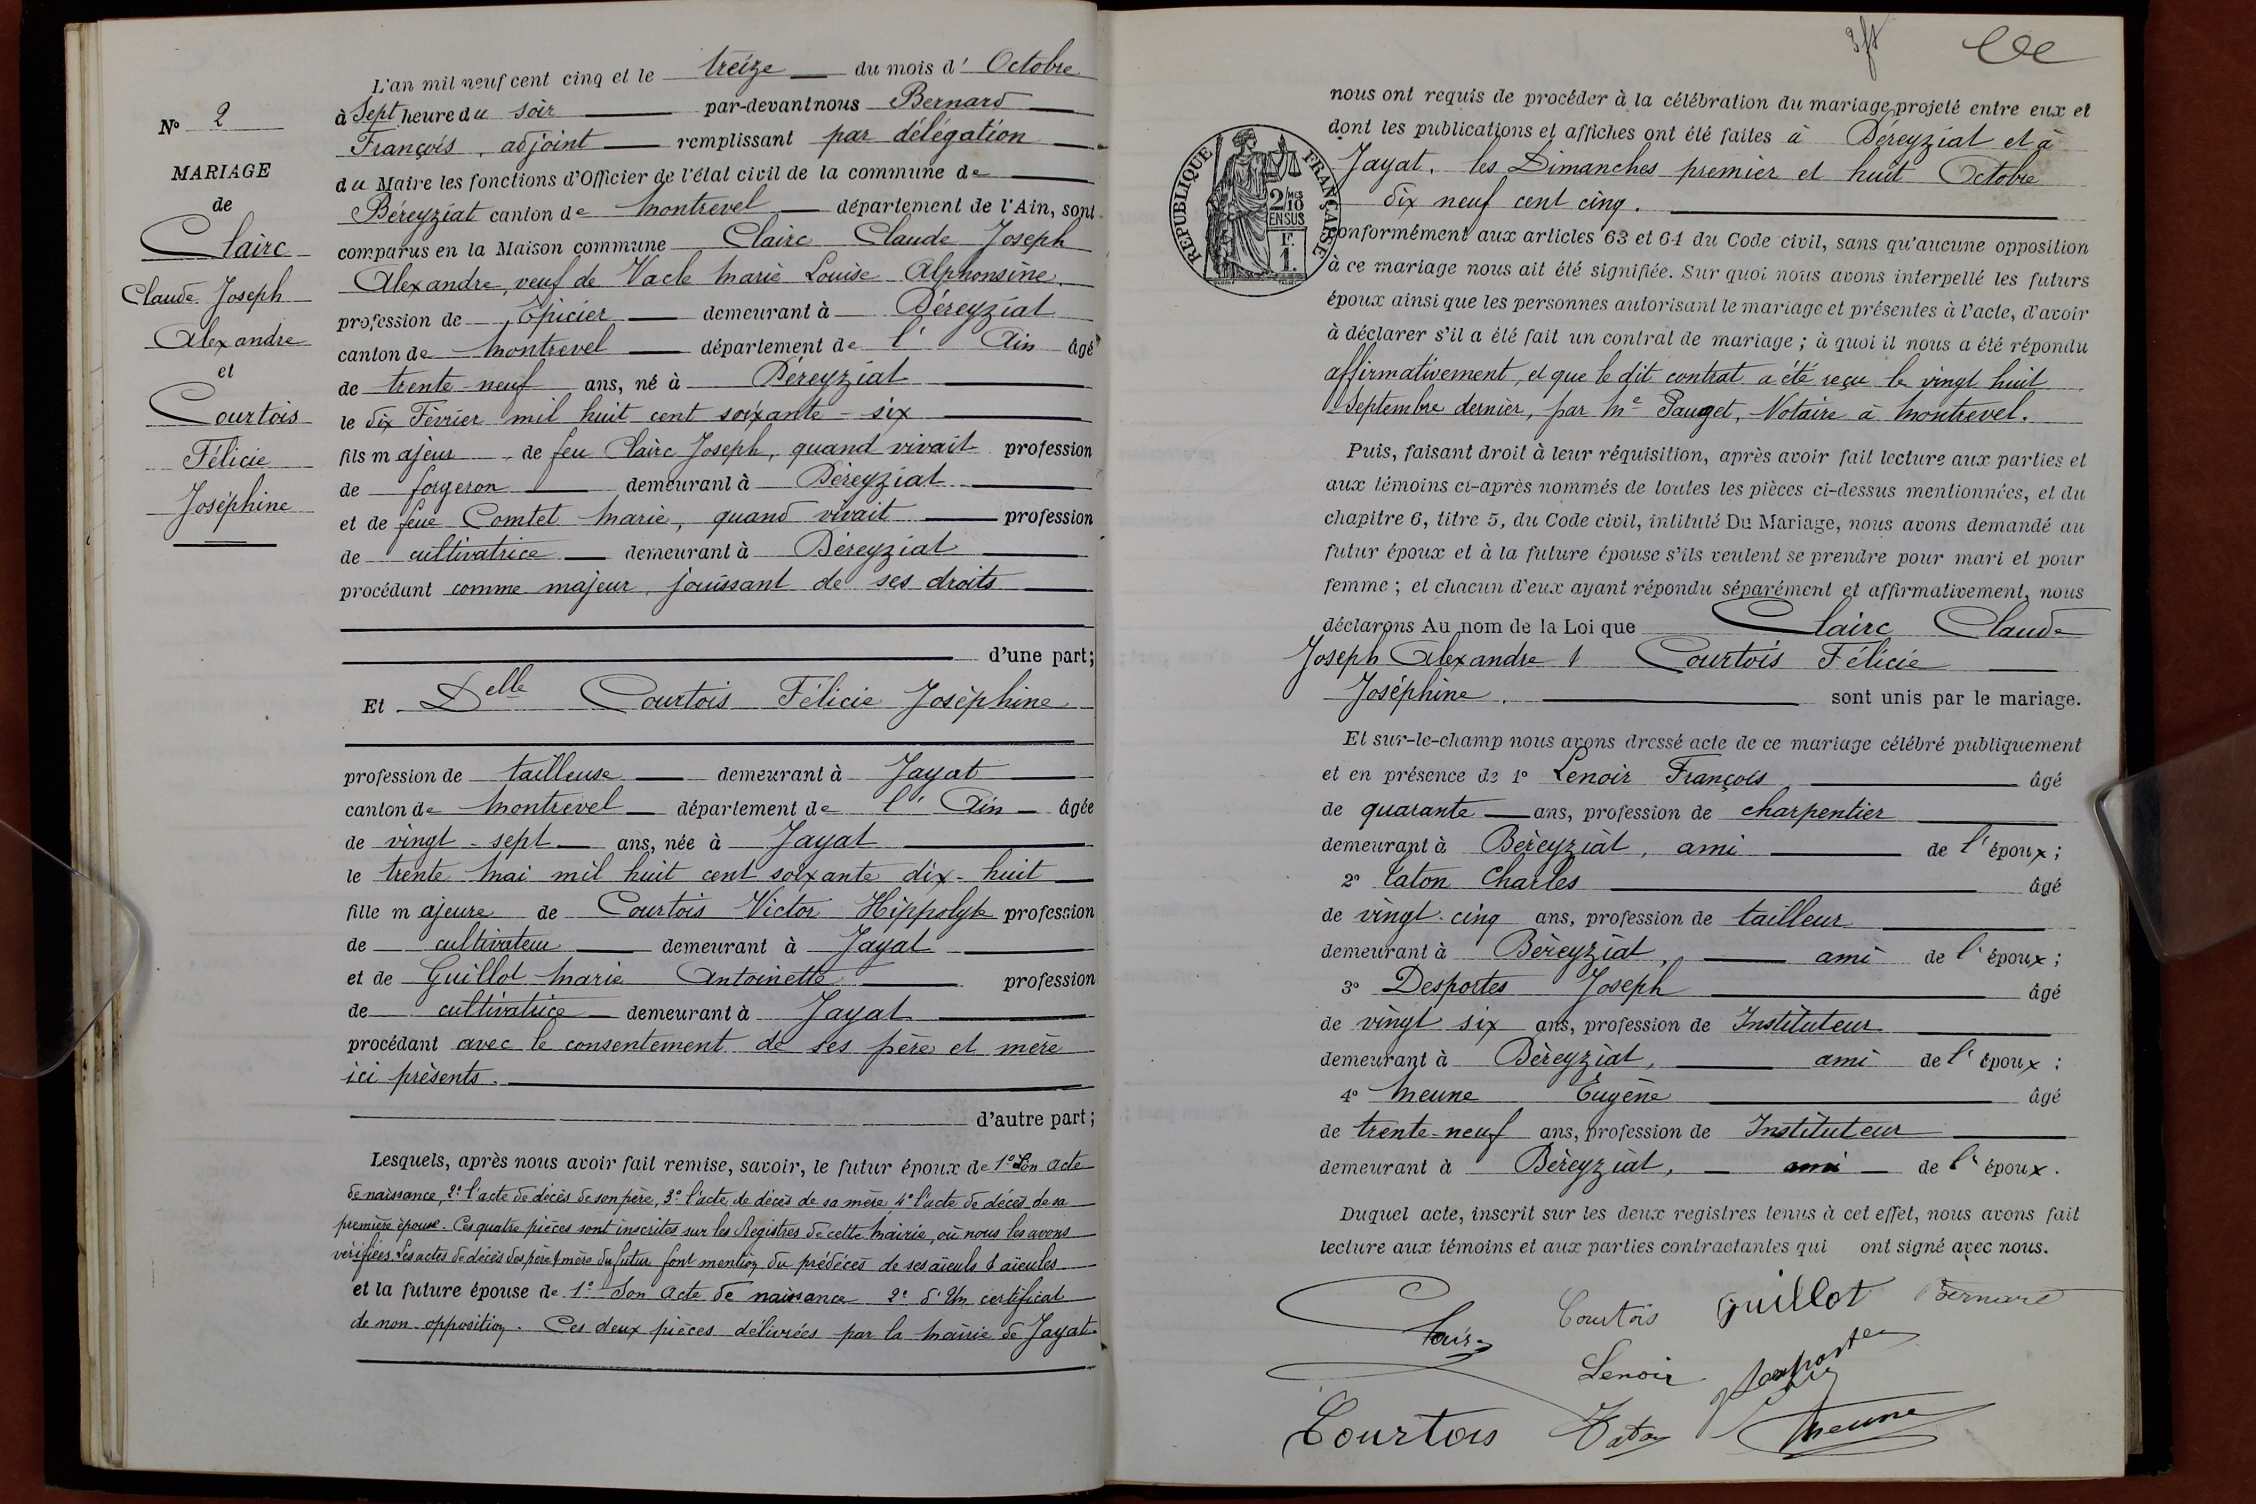 L'an mil neuf cent cinq et le treize du mois d' Octobre
à Sept heure du soir par-devant nous Bernard
François, adjoint remplissant par délégation
du Maire les fonctions d'Officier de l'état civil de la commune de
Béreyziat canton de Montrevel département de l'Ain, sont
comparus en la Maison commune Clairc Claude Joseph
Alexandre, veuf de Vacle Marie Louise Alphonsine
profession de Epicier demeurant à Béreyziat
canton de Montrevel département de l' Ain âgé
de trente-neuf ans, né à Béreyziat
le dix Février mil huit cent soixante-six
fils majeur de feu Clairc Joseph, quand vivait profession
de forgeron demeurant à Béreyziat
et de feue Comtet Marie, quand vivait profession
de cultivatrice demeurant à Béreyziat
procédant comme majeur, jouissant de ses droits
d'une part;
Et Delle Courtois Félicie Joséphine
profession de tailleuse demeurant à Jayat
canton de Montrevel département de l' Ain âgée
de vingt-sept ans, née à Jayat
le trente Mai mil huit cent soixante dix-huit
fille majeure de Courtois Victor Hippolyte profession
de cultivateur demeurant à Jayat
et de Guillot Marie Antoinette profession
de cultivatrice demeurant à Jayat
procédant avec le consentement de ses père et mère
ici présents.
d'autre part;
Lesquels, après nous avoir fait remise, savoir, le futur époux de 1° Son acte
de naissance, 2° l'acte de décès de son père, 3° l'acte de décès de sa mère 4° l'acte de décès de sa
première épouse. Ces quatre pièces sont inscrites sur les Registres de cette Mairie, où nous les avons
vérifiées. Les actes de décès des père & mère du futur font mention du prédécès de ses aïeuls & aïeules
et la future épouse de 1° Son Acte de naissance 2° d'Un certificat
de non-opposition. Ces deux pièces délivrées par la Mairie de Jayat.
N° 2
MARIAGE
de
Clairc
Claude Joseph
Alexandre
et
Courtois
Félicie
Joséphine
nous ont requis de procéder à la célébration du mariage projeté entre eux et
dont les publications et affiches ont été faites à Béreyziat et à
Jayat, les Dimanches premier et huit Octobre
dix neuf cent cinq.
Conformément aux articles 63 et 64 du Code civil, sans qu'aucune opposition
à ce mariage nous ait été signifiée. Sur quoi nous avons interpellé les futurs
époux ainsi que les personnes autorisant le mariage et présentes à l'acte, d'avoir
à déclarer s'il a été fait un contrat de mariage; à quoi il nous a été répondu
affirmativement, et que le dit contrat a été reçu le vingt huit
Septembre dernier, par Me Pauget, Notaire à Montrevel.
Puis, faisant droit à leur réquisition, après avoir fait lecture aux parties et
aux témoins ci-après nommés de toutes les pièces ci-dessus mentionnées, et du
chapitre 6, titre 5, du Code civil, intitulé Du Mariage, nous avons demandé au
futur époux et à la future épouse s'ils veulent se prendre pour mari et pour
femme; et chacun d'eux ayant répondu séparément et affirmativement, nous
déclarons Au nom de la Loi que Clairc Claude
Joseph Alexandre & Courtois Félicie
Joséphine. sont unis par le mariage.
Et sur-le-champ nous avons dressé acte de ce mariage célébré publiquement
et en présence de 1° Lenoir François âgé
de quarante ans, profession de charpentier
demeurant à Béreyziat, ami de l'époux;
2° Caton Charles âgé
de vingt-cinq ans, profession de tailleur
demeurant à Béreyziat, ami de l'époux;
3° Desportes Joseph âgé
de vingt six ans, profession de Instituteur
demeurant à Béreyziat, ami de l'époux;
4° Meune Eugène âgé
de trente-neuf ans, profession de Instituteur
demeurant à Béreyziat, ami de l'époux.
Duquel acte, inscrit sur les deux registres tenus à cet effet, nous avons fait
lecture aux témoins et aux parties contractantes qui ont signé avec nous.
Clairc Courtois Guillot Bernard
Lenoir Desportes
Courtois Caton Meune
RÉPUBLIQUE FRANÇAISE
2/10 MES
EN SUS
1 F.